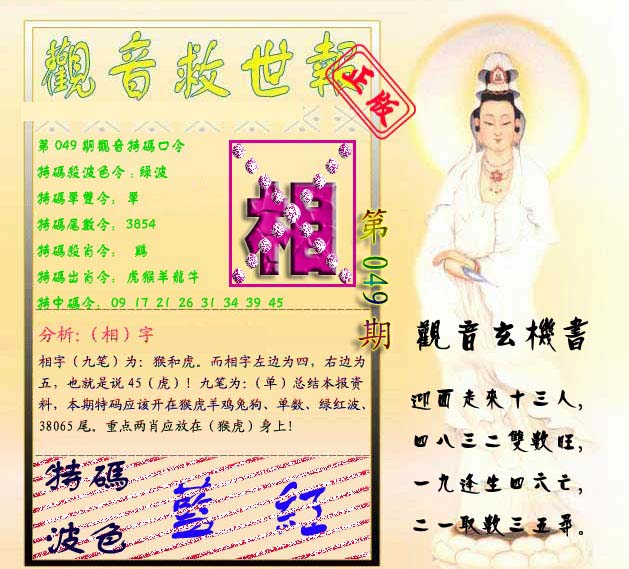 觀音救世報
正版
第 049 期觀音特碼口令
特碼殺波色令：綠波
特碼單雙令： 單
特碼尾數令： 3854
特碼殺肖令： 鷄
特碼出肖令： 虎猴羊龍牛
特中碼令： 09 17 21 26 31 34 39 45
相
第 049 期
分析:（相）字
相字（九笔）为：猴和虎。而相字左边为四，右边为
五，也就是说 45（虎）！九笔为：（单）总结本报资
料，本期特码应该开在猴虎羊鸡兔狗、单数、绿红波、
38065 尾。重点两肖应放在（猴虎）身上！
特碼
波色
藍 红
觀音玄機書
迎面走來十三人，
四八三二雙數旺，
一九逢生四六亡，
二一取數三五尋。